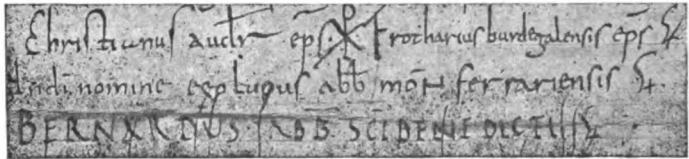 Christianus autclr eps. Frotharius burdegalensis eps
In di nomine ego lupus abb mon ferrariensis
BERNARDUS ABB SCI BENEDICTI